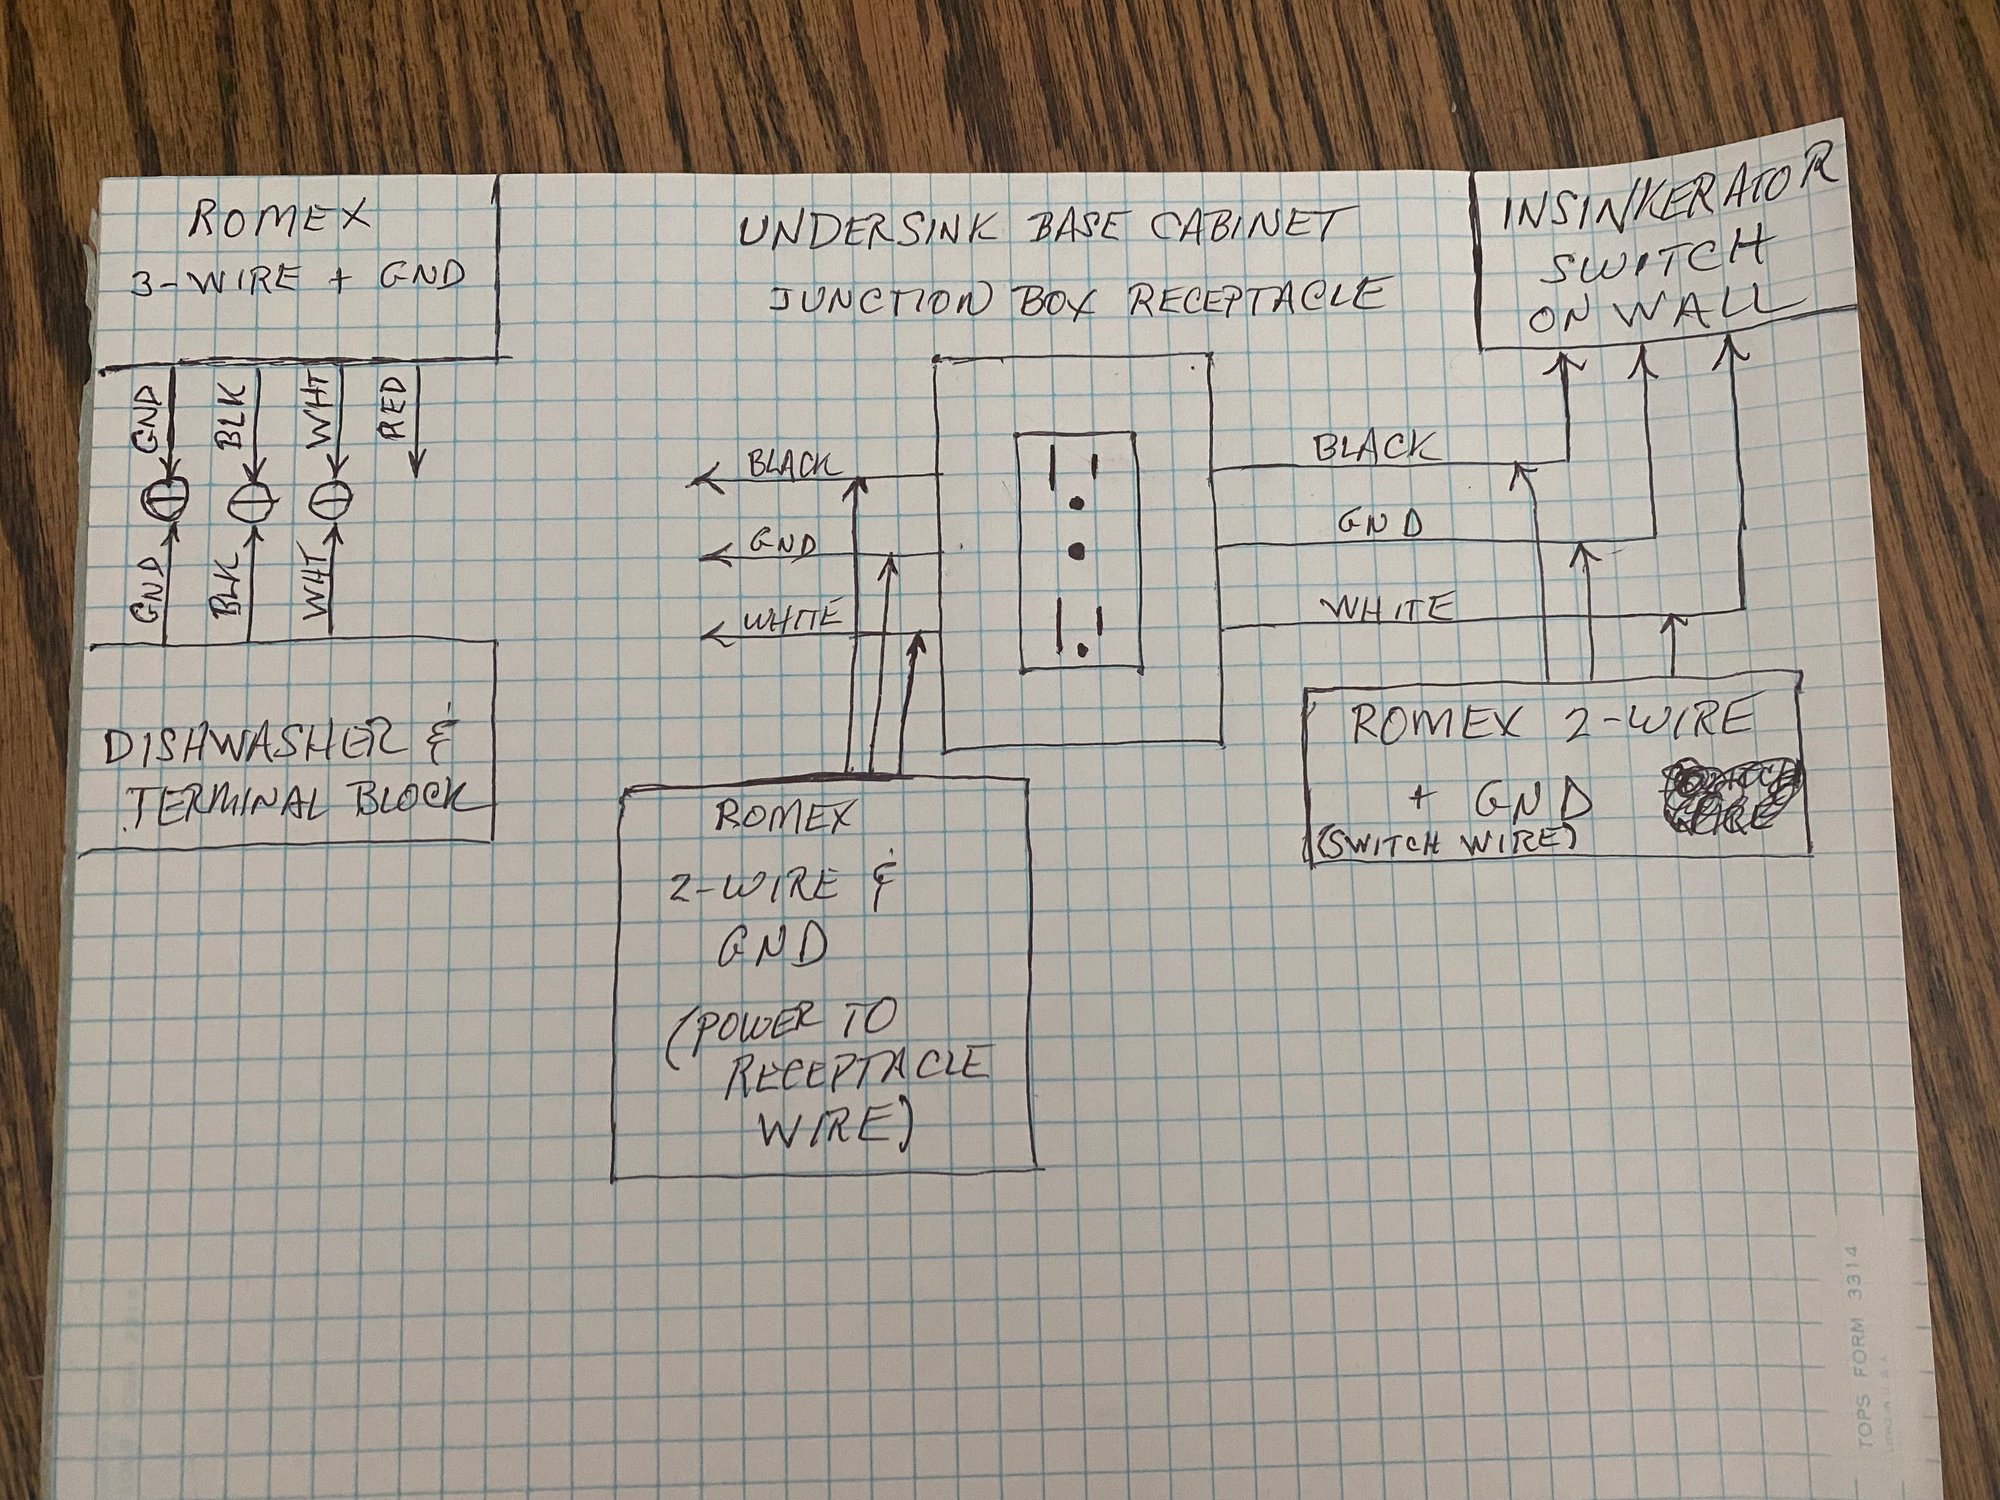 ROMEX
3-WIRE + GND
UNDERSINK BASE CABINET
JUNCTION BOX RECEPTACLE
INSINKERATOR
SWITCH
ON WALL
GND
BLK
WHT
RED
GND
BLK
WHT
BLACK
GND
WHITE
BLACK
GND
WHITE
DISHWASHER &
TERMINAL BLOCK
ROMEX
2-WIRE &
GND
(POWER TO
RECEPTACLE
WIRE)
ROMEX 2-WIRE
+ GND
(SWITCH WIRE)
TOPS FORM 3314